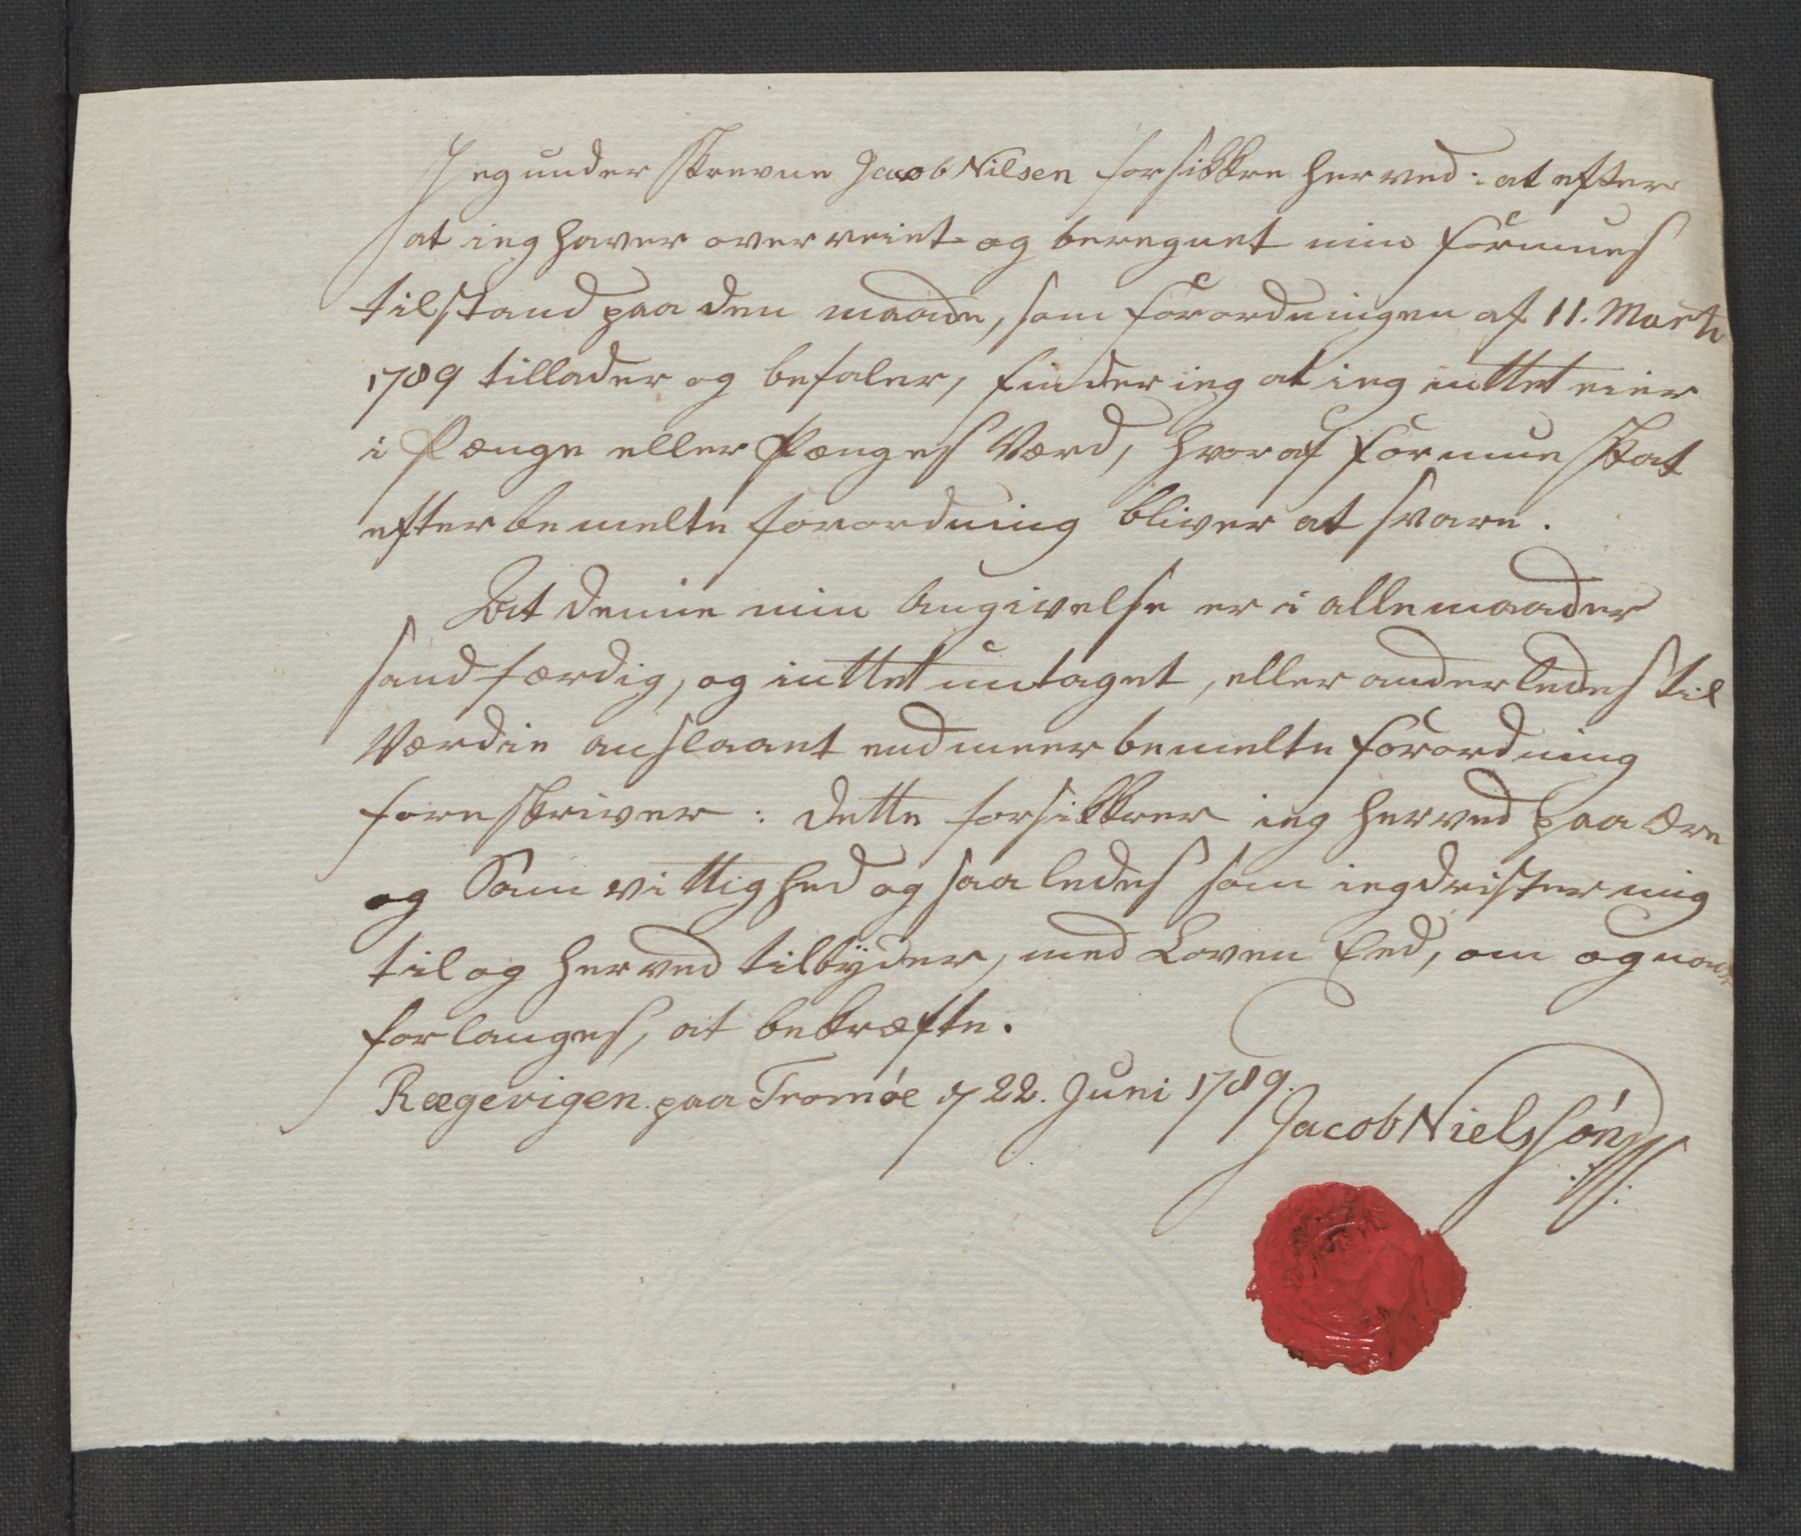 Jeg under skrevne Jacob Nilsen forsikkre herved: at efter
at ieg haver overveiet og beregnet min Formues
tilstand paa den maade, som Forordningen af 11. Marti
1789 tillader og befaler, finder ieg at ieg inttet eier
i Pænge eller Pænges Værd, hvoraf Formue Skat
efter bemelte forordning bliver at svare.
At denne min Angivelse er i alle maader
sandfærdig, og inttet untaget, eller anderledes til
Værdie anslaaet end meer bemelte Forordning
foreskriver: dette forsikkrer ieg herved paa Ære
og Samvittighed og saaledes som ieg drister mig
til og herved tilbyder, med Loven Eed, om og naar
forlanges, at bekræfte.
Rægevigen paa Tromøe d 22. Juni 1789.
Jacob Nielssøn